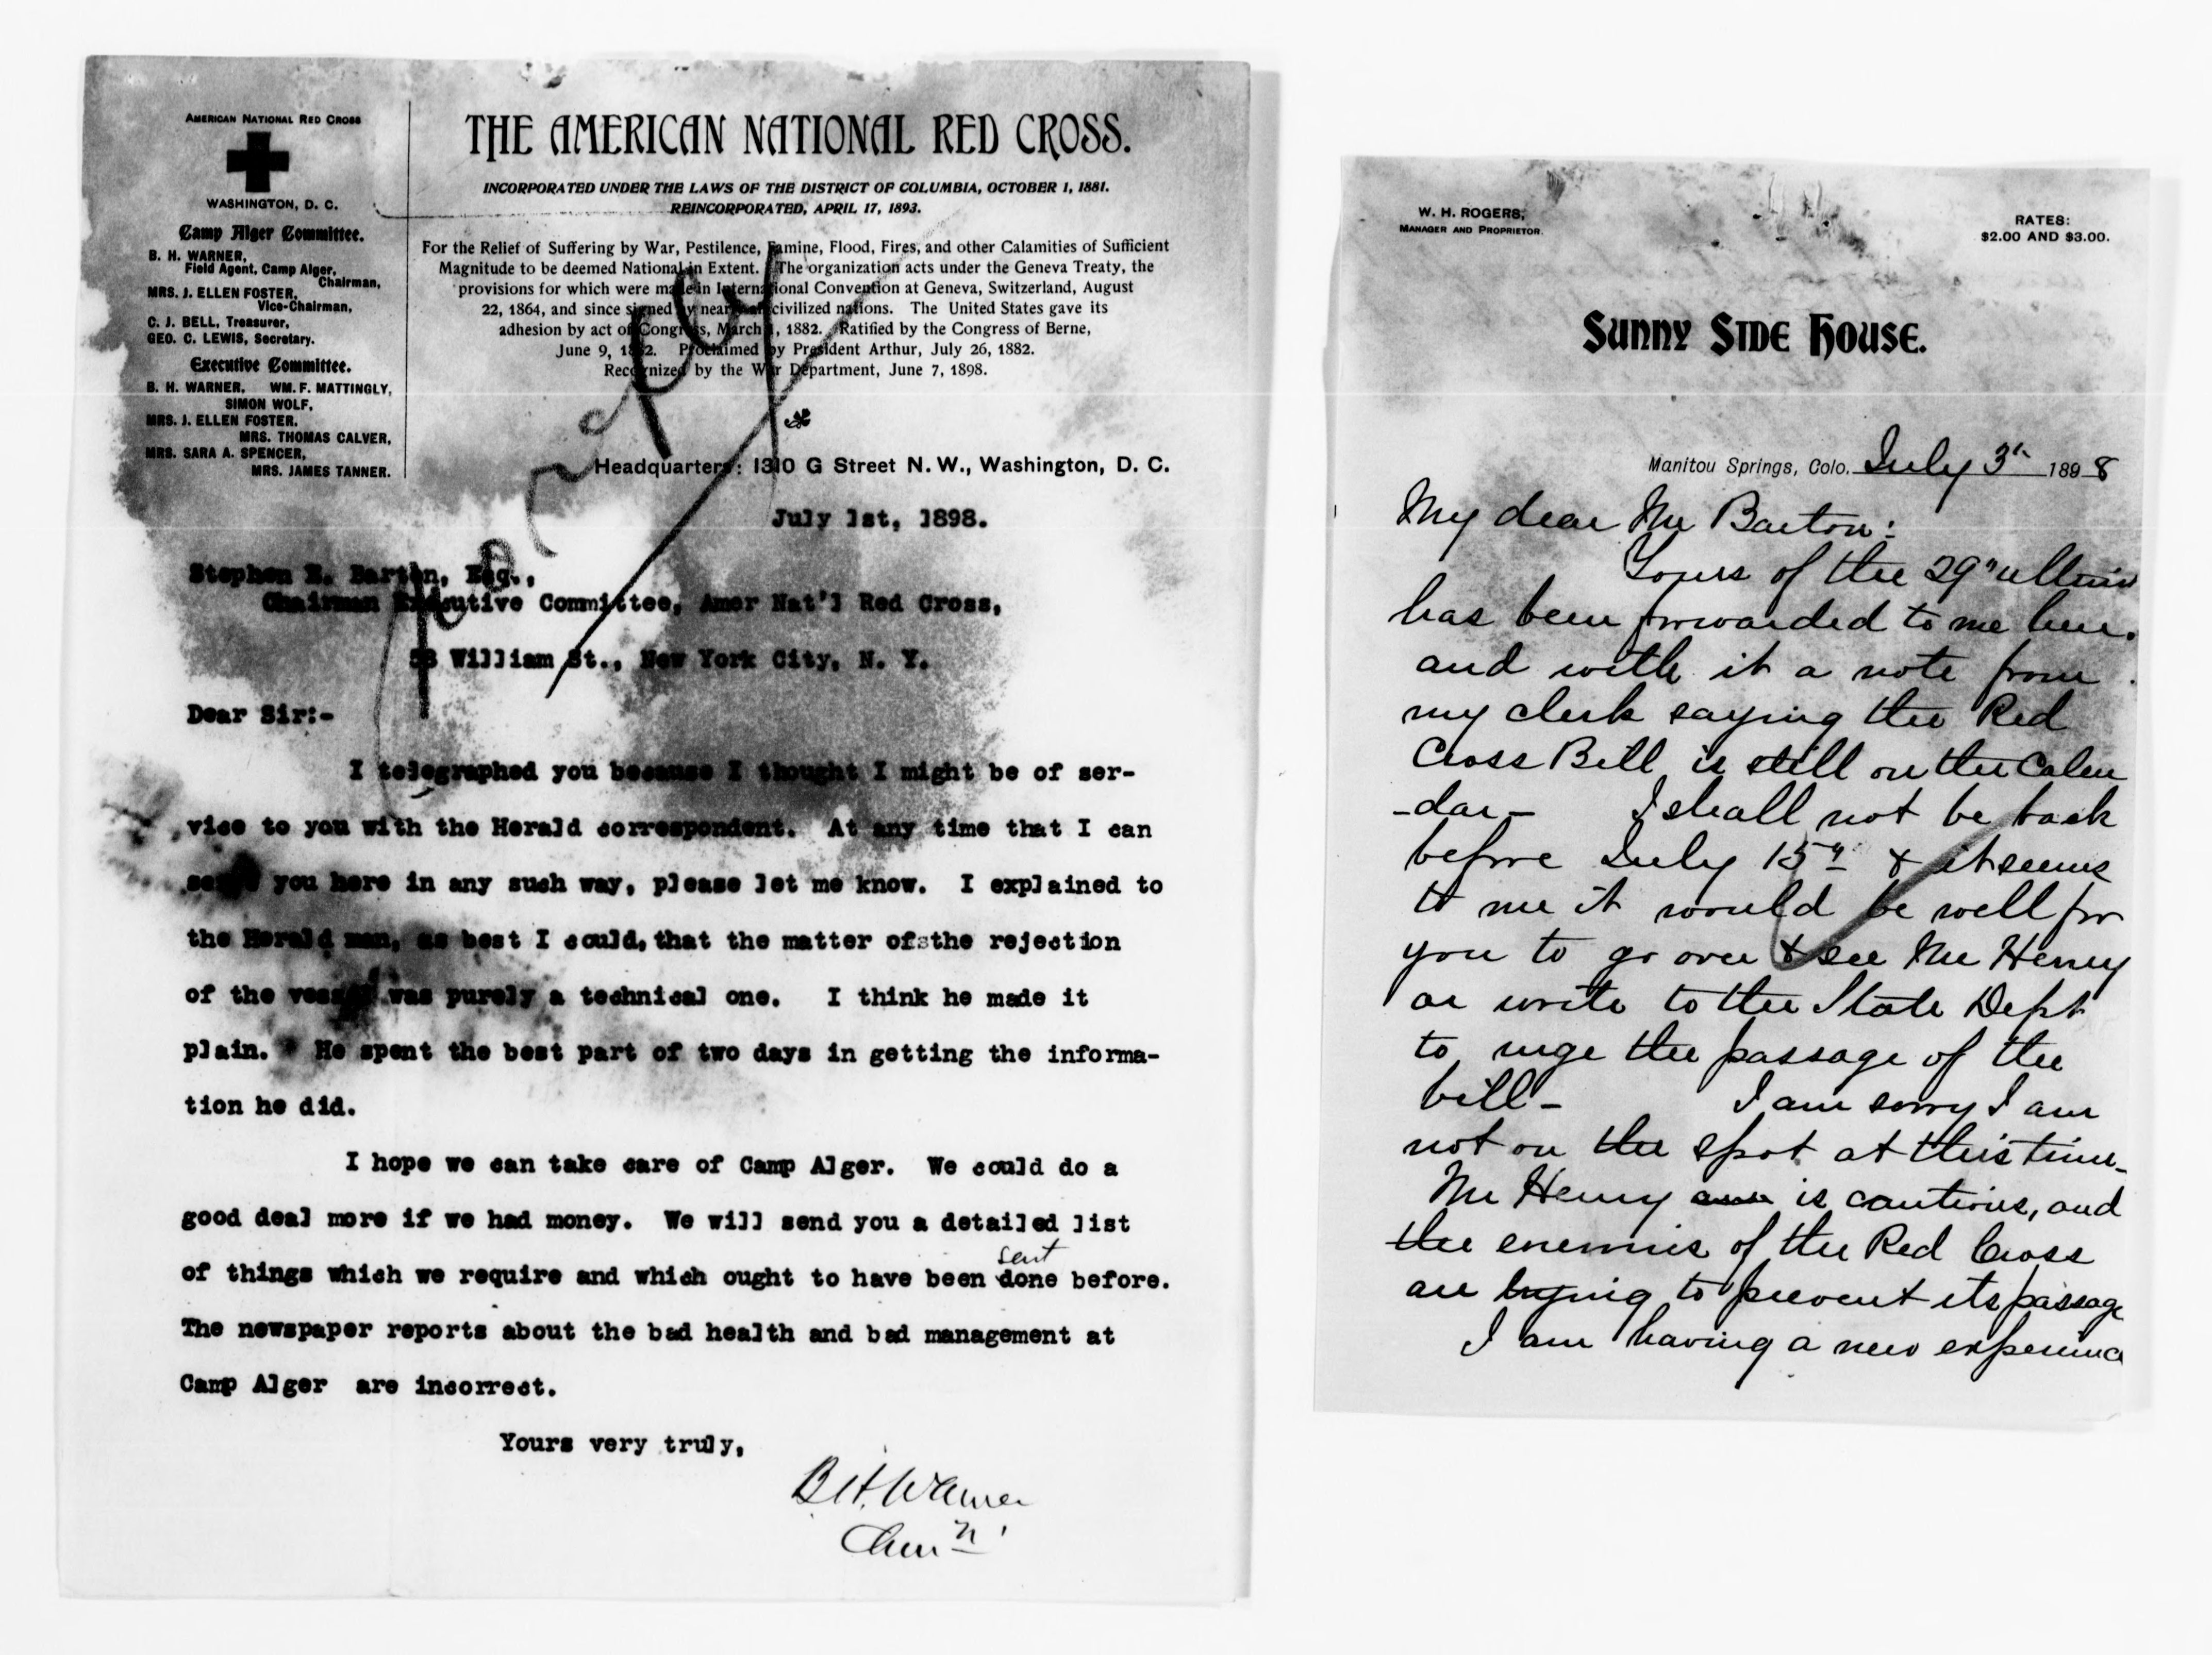 AMERICAN NATIONAL RED CROSS
WASHINGTON, D. C.
Camp Alger Committee.
B. H. WARNER,
Field Agent, Camp Alger,
Chairman,
MRS. J. ELLEN FOSTER,
Vice-Chairman,
C. J. BELL, Treasurer,
GEO. C. LEWIS, Secretary.
Executive Committee.
B. H. WARNER, WM. F. MATTINGLY,
SIMON WOLF,
MRS. J. ELLEN FOSTER,
MRS. THOMAS CALVER,
MRS. SARA A. SPENCER,
MRS. JAMES TANNER.
THE AMERICAN NATIONAL RED CROSS.
INCORPORATED UNDER THE LAWS OF THE DISTRICT OF COLUMBIA, OCTOBER 1, 1881.
REINCORPORATED, APRIL 17, 1893.
For the Relief of Suffering by War, Pestilence, Famine, Flood, Fires, and other Calamities of Sufficient
Magnitude to be deemed National in Extent. The organization acts under the Geneva Treaty, the
provisions for which were made in International Convention at Geneva, Switzerland, August
22, 1864, and since signed by nearly all civilized nations. The United States gave its
adhesion by act of Congress, March 1, 1882. Ratified by the Congress of Berne,
June 9, 1882. Proclaimed by President Arthur, July 26, 1882.
Recognized by the War Department, June 7, 1898.
Headquarters: 1310 G Street N. W., Washington, D. C.
July 1st, 1898.
Stephen E. Barton, Esq.,
Chairman Executive Committee, Amer Nat'l Red Cross,
58 William St., New York City, N. Y.
Dear Sir:-
I telegraphed you because I thought I might be of ser-
vice to you with the Herald correspondent. At any time that I can
serve you here in any such way, please let me know. I explained to
the Herald man, as best I could, that the matter of the rejection
of the vessel was purely a technical one. I think he made it
plain. He spent the best part of two days in getting the informa-
tion he did.
I hope we can take care of Camp Alger. We could do a
good deal more if we had money. We will send you a detailed list
sent
of things which we require and which ought to have been done before.
The newspaper reports about the bad health and bad management at
Camp Alger are incorrect.
Yours very truly,
B H. Warner
Chm'n
W. H. ROGERS,
MANAGER AND PROPRIETOR.
RATES:
$2.00 AND $3.00.
SUNNY SIDE HOUSE.
Manitou Springs, Colo. July 3" 1898
My dear Mr Barton:
Yours of the 29" ultimo
has been forwarded to me here.
and with it a note from
my clerk saying the Red
Cross Bill is still on the Calen
-dar- I shall not be back
before July 15" & it seems
to me it would be well for
you to go over & see Mr Henry
or write to the State Dept
to urge the passage of the
bill- I am sorry I am
not on the spot at this time-
Mr Henry is cautious, and
the enemies of the Red Cross
are trying to prevent its passage
I am having a new experience